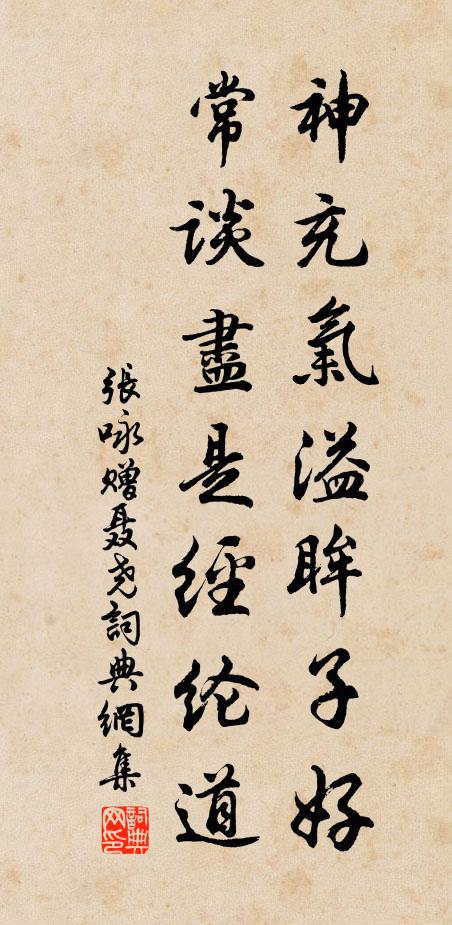 神充氣溢眸子好
常談盡是經纶道
張咏赠聂尧詞典網集
詞典网印